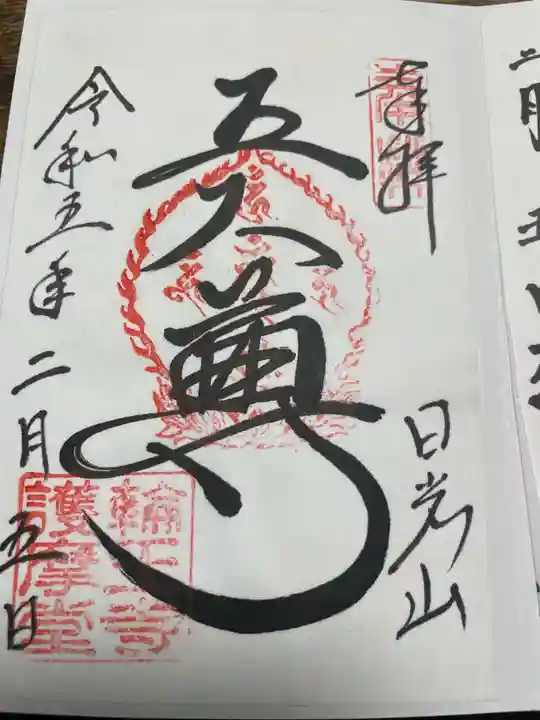 奉拝
日光山
五大尊
令和五年二月五日
輪王寺
護摩堂
二月